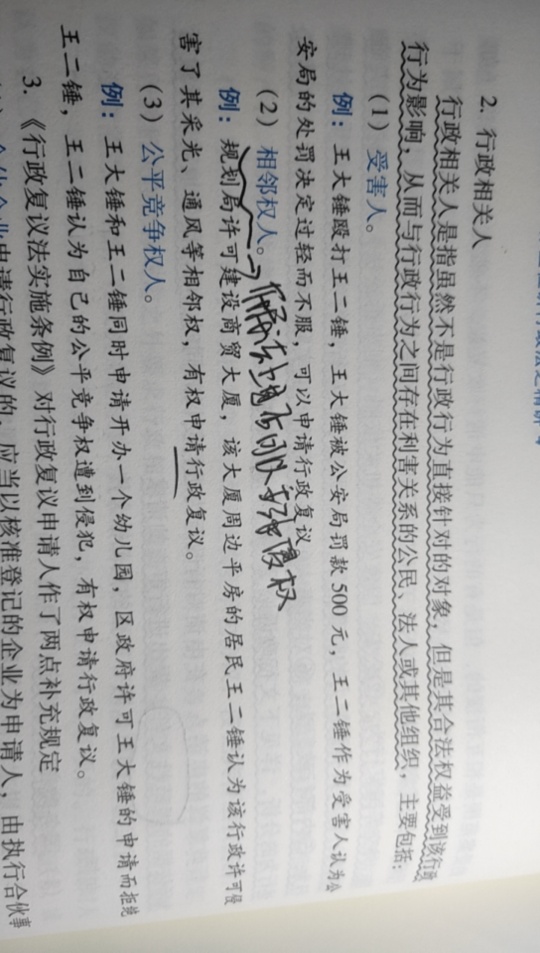 2. 行政相关人
行政相关人是指虽然不是行政行为直接针对的对象，但是其合法权益受到该行政
行为影响，从而与行政行为之间存在利害关系的公民、法人或其他组织，主要包括：
（1）受害人。
例：王大锤殴打王二锤，王大锤被公安局罚款500元，王二锤作为受害人认为公
安局的处罚决定过轻而不服，可以申请行政复议
（2）相邻权人。
例：规划局许可建设商贸大厦，该大厦周边平房的居民王二锤认为该行政许可侵
害了其采光、通风等相邻权，有权申请行政复议。
（3）公平竞争权人。
例：王大锤和王二锤同时申请开办一个幼儿园，区政府许可王大锤的申请而拒绝
王二锤，王二锤认为自己的公平竞争权遭到侵犯，有权申请行政复议。
3.《行政复议法实施条例》对行政复议申请人作了两点补充规定
合伙企业申请行政复议的，应当以核准登记的企业为申请人，由执行合伙事